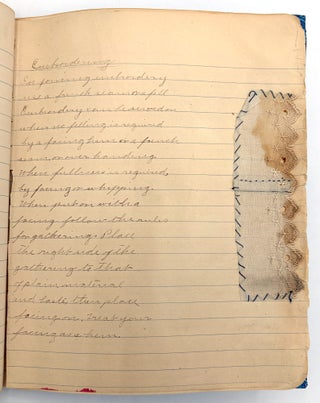 Embordering
In joining embordery
use a french seam or a fell
Embordery can be used on
when no felling is required
by a facing hem or a french
seam or over handing
When fullness is required,
by facing or whipping.
When put on with a
facing follow the rules
for gatherings. Place
the right side of the
gathering to that
of plain material
and baste, then place
facing on. Treat your
facing as a hem.